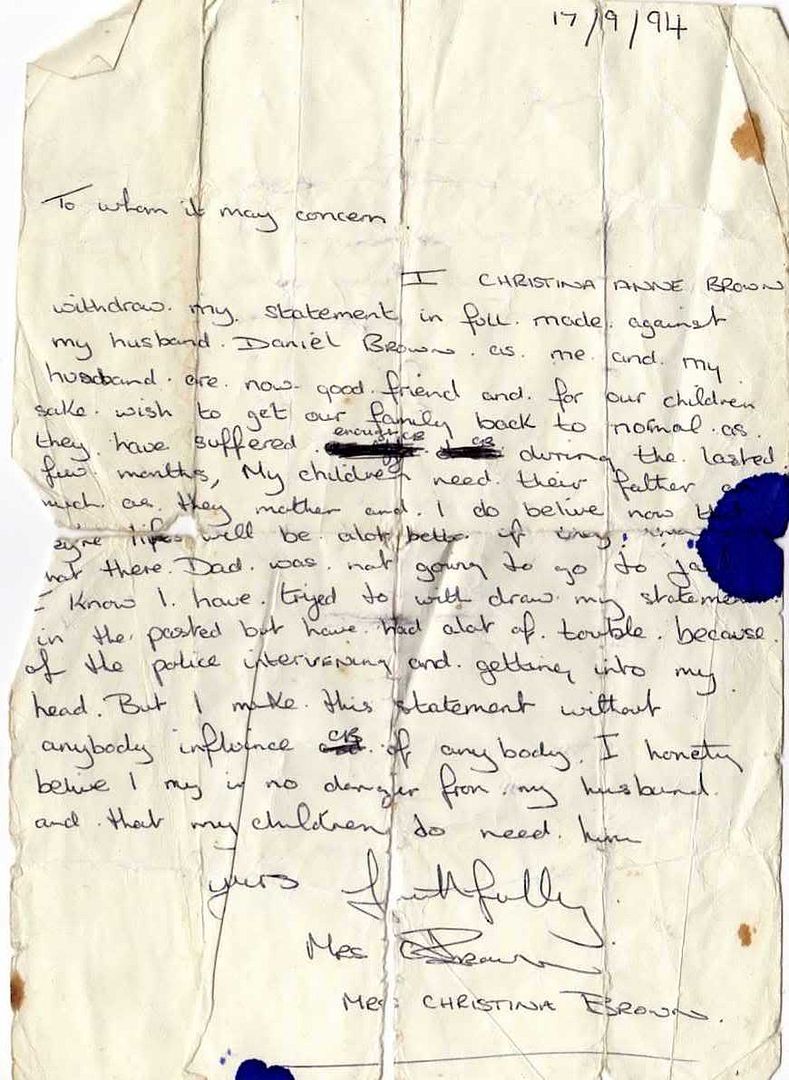 17/9/94
To whom it may concern
I CHRISTINA ANNE BROWN
withdraw. my. statement in full. made. against
my husband. Daniel BROWN. as. me. and. my
husband. are. now. good. friend and. for our children
sake. wish to get our family back to normal. as.
enough CB CB
they. have suffered. during the lasted
few. months, My children need. their father
much. as. they mother and. I do belive now
will be. alot if
not there. Dad. was. not gowing to go to
I Know I. have. tryed to with draw. my
in the. pasted but have. had alot of. touble. because.
of the police intervening and. getting into my
head. But I make. this statement without
CB
anybody influince of anybody. I honety
belive I my in no danger from. my husband.
and. that my children do need. him
yurs faithfully
Mrs CBrown
MRS CHRISTINA BROWN.